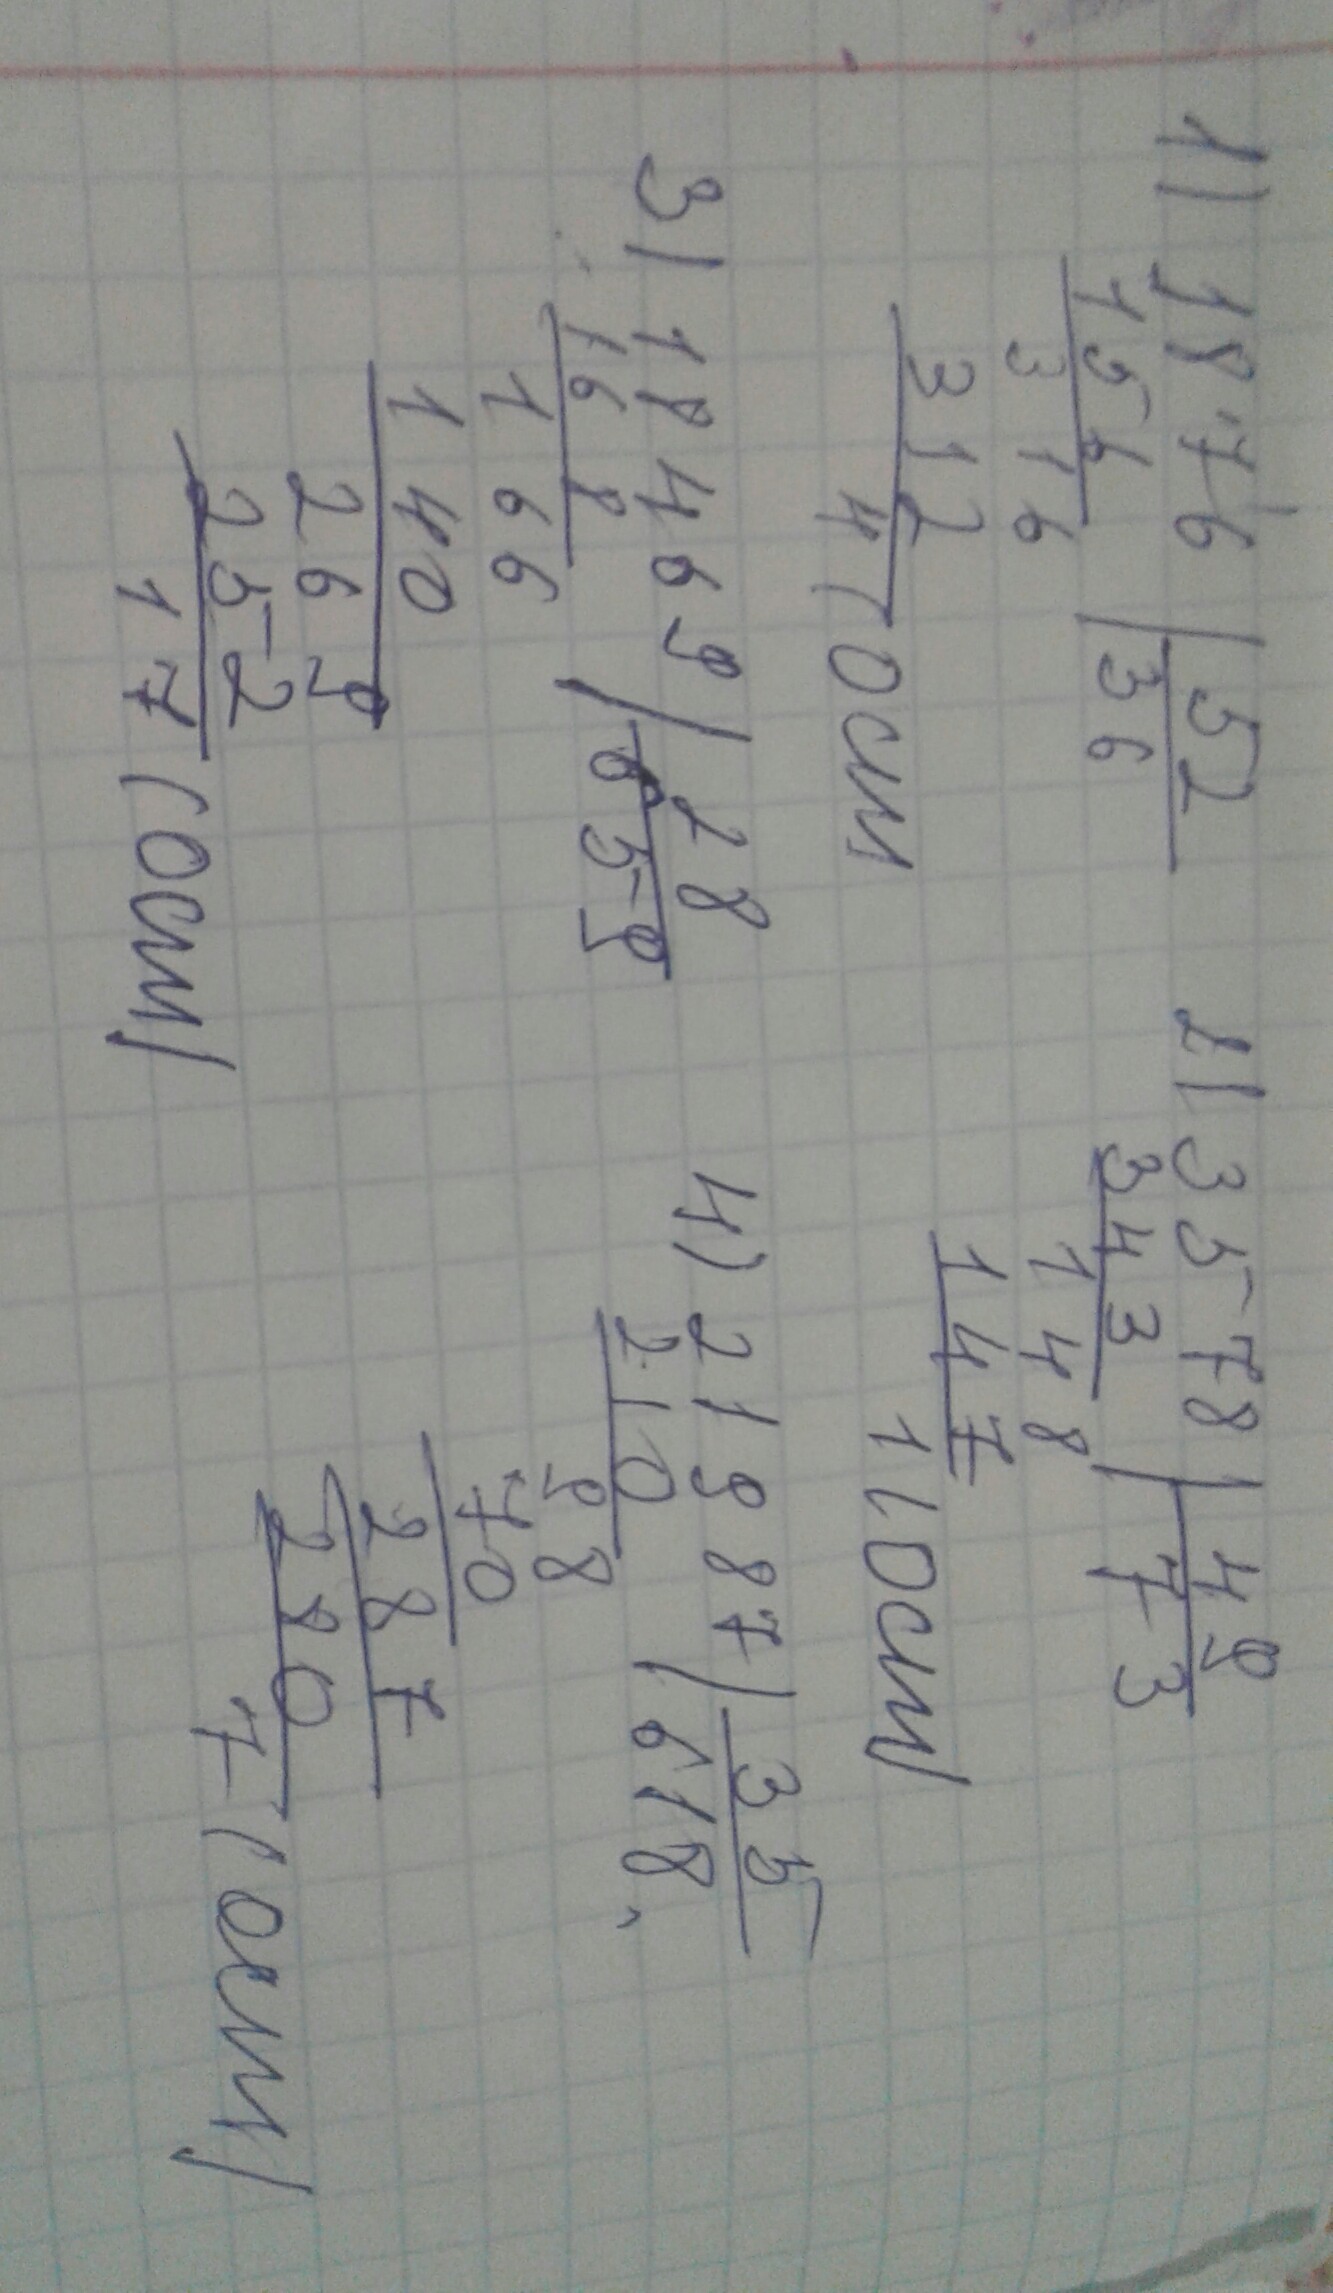 1) 1876 | 52
156 | 36
316
312
4 (ост
2) 3578 | 49
343 | 73
148
147
1 (ост)
3) 18469 | 28
168 | 659
166
140
269
252
17 (ост)
4) 21987 | 35
210 | 618
98
70
287
280
7 (ост)